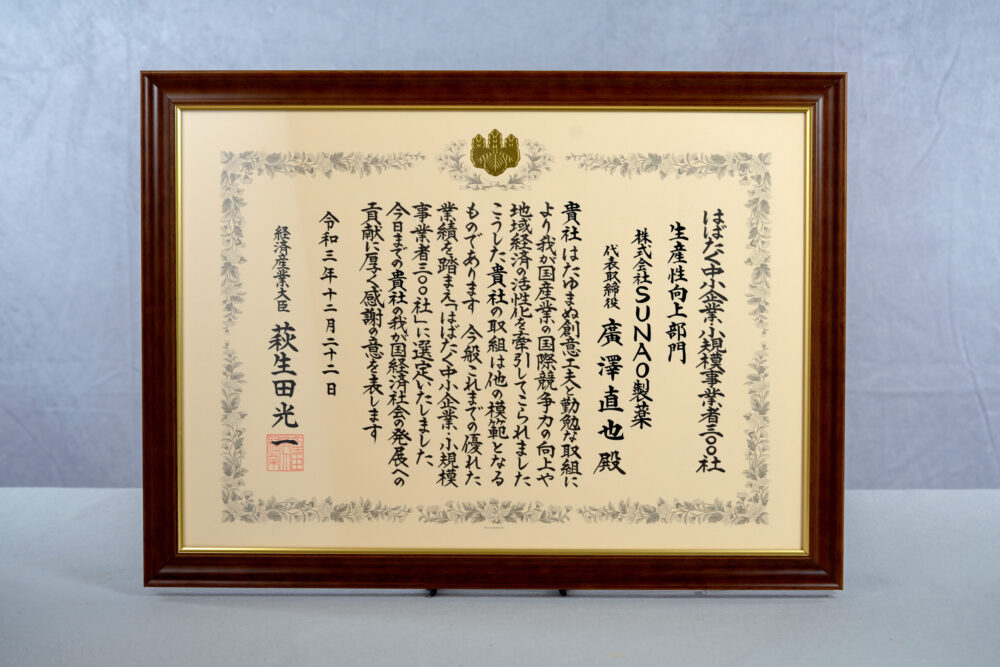 はばたく中小企業・小規模事業者三〇〇社
生産性向上部門
株式会社SUNAO製薬
代表取締役 廣澤直也殿
貴社はたゆまぬ創意工夫と勤勉な取組に
より我が国産業の国際競争力の向上や
地域経済の活性化を牽引してこられました
こうした貴社の取組は他の模範となる
ものであります 今般これまでの優れた
業績を踏まえ「はばたく中小企業・小規模
事業者三〇〇社」に選定いたしました
今日までの貴社の我が国経済社会の発展への
貢献に厚く感謝の意を表します
令和三年十二月二十二日
経済産業大臣 萩生田光一